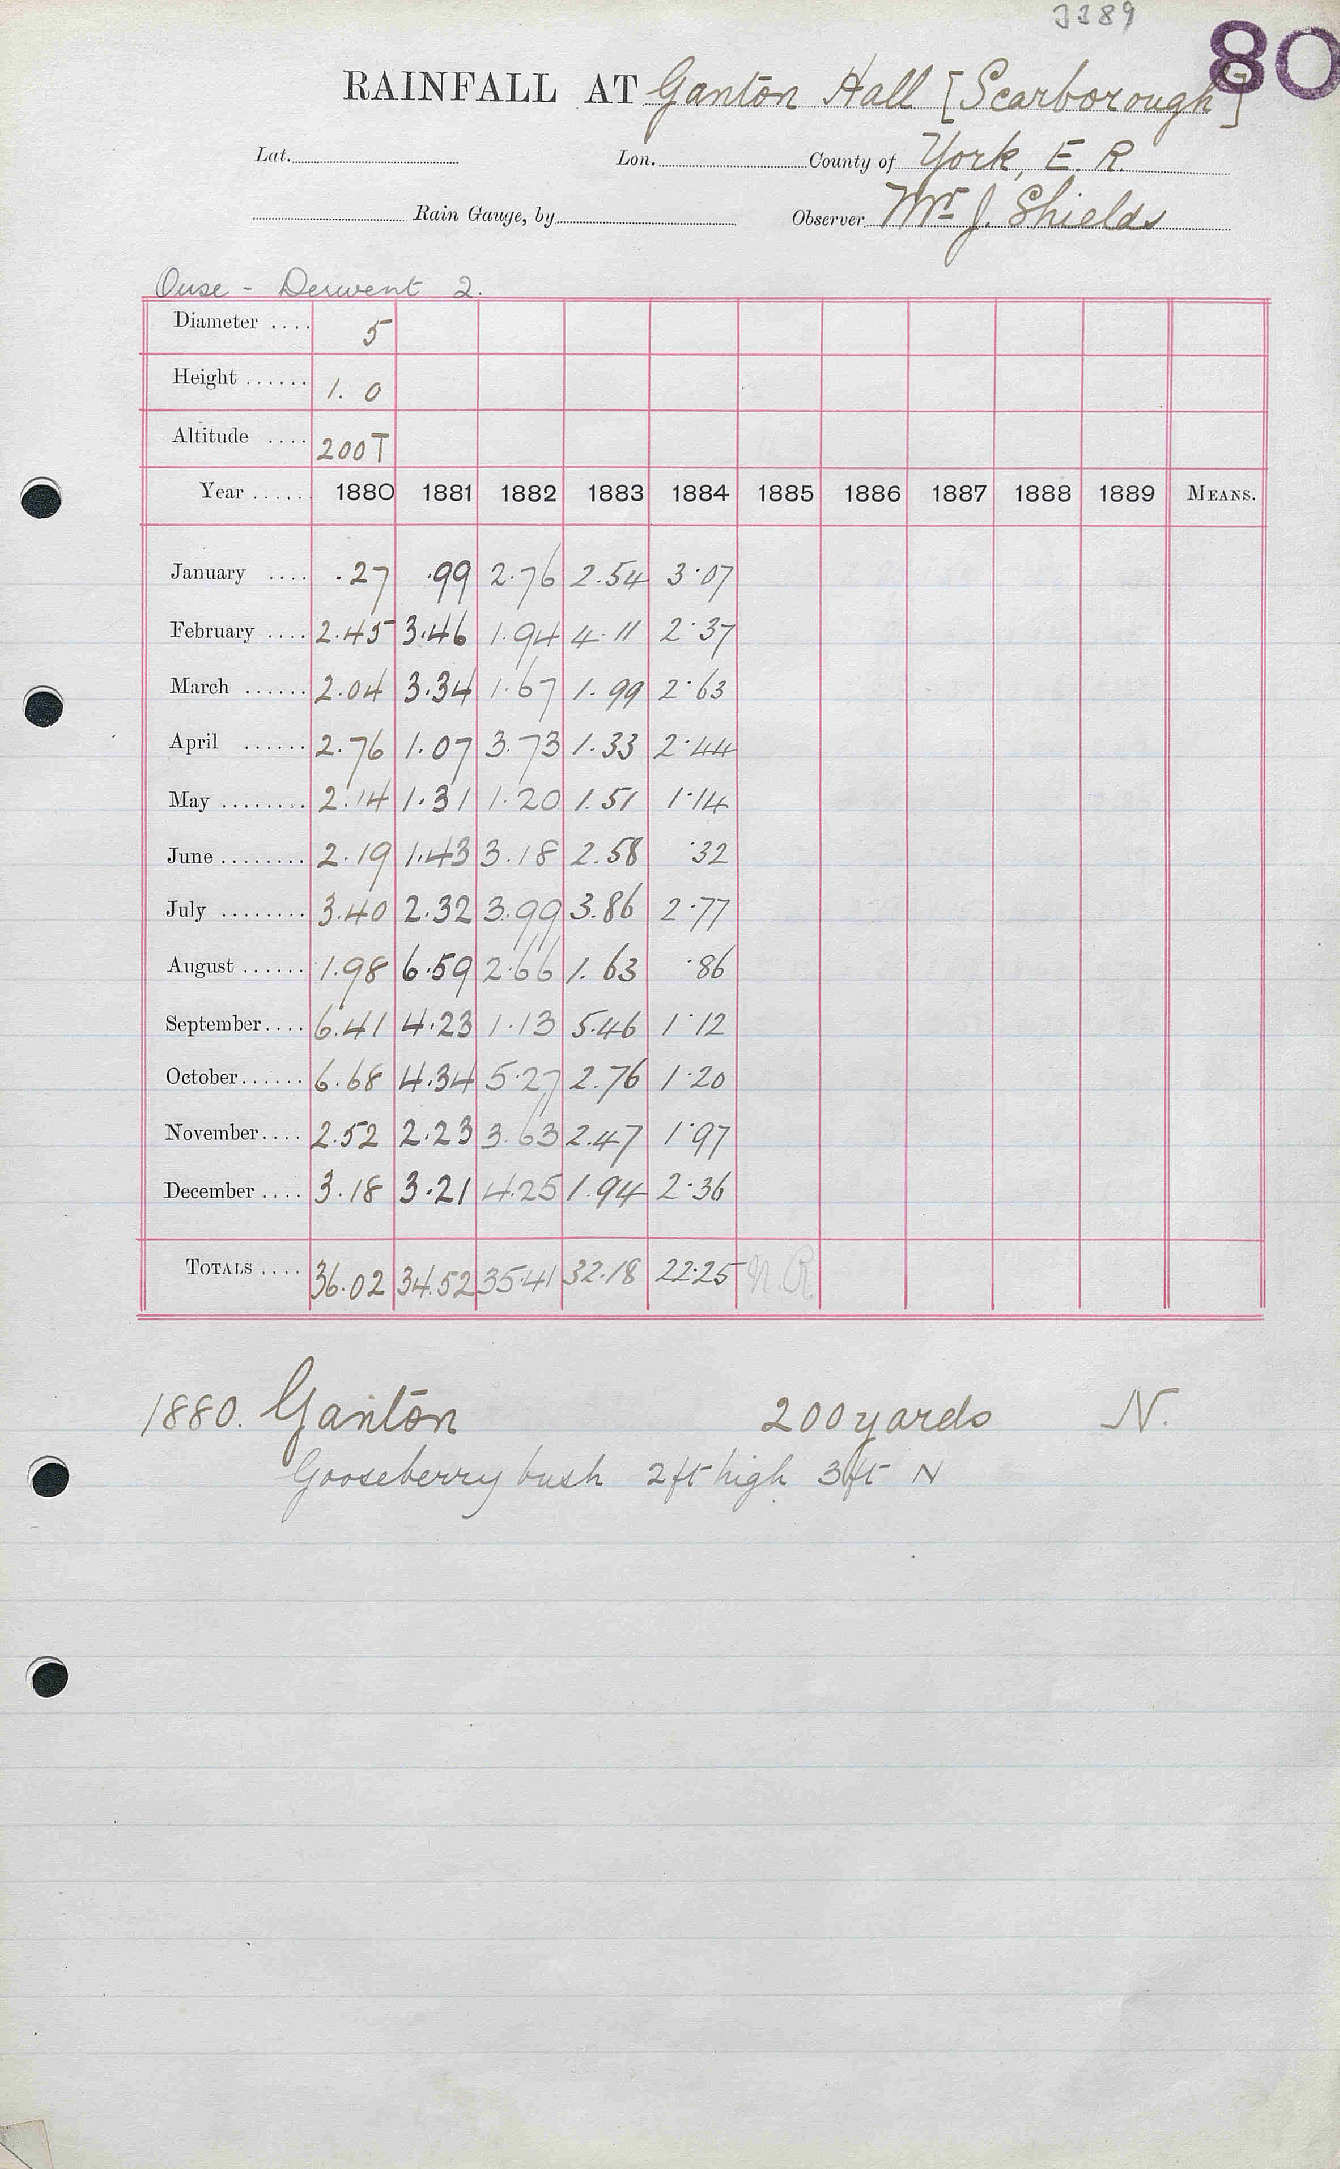 3389
80
RAINFALL AT Ganton Hall [Scarborough]
Lat. Lon. County of York, E. R.
Rain Gauge, by Observer Mr. J. Shields
Ouse - Derwent 2.
Diameter .... 5
Height ...... 1. 0
Altitude .... 200 T
Year ...... 1880 1881 1882 1883 1884 1885 1886 1887 1888 1889 MEANS.
January .... .27 .99 2.76 2.54 3.07
February .... 2.45 3.46 1.94 4.11 2.37
March ...... 2.04 3.34 1.67 1.99 2.63
April ...... 2.76 1.07 3.73 1.33 2.44
May ........ 2.14 1.31 1.20 1.51 1.14
June ........ 2.19 1.43 3.18 2.58 .32
July ........ 3.40 2.32 3.99 3.86 2.77
August ...... 1.98 6.59 2.66 1.63 .86
September.... 6.41 4.23 1.13 5.46 1.12
October...... 6.68 4.34 5.27 2.76 1.20
November.... 2.52 2.23 3.63 2.47 1.97
December .... 3.18 3.21 4.25 1.94 2.36
TOTALS .... 36.02 34.52 35.41 32.18 22.25 N R
1880. Ganton 200 yards N.
Gooseberry bush 2ft high 3ft N